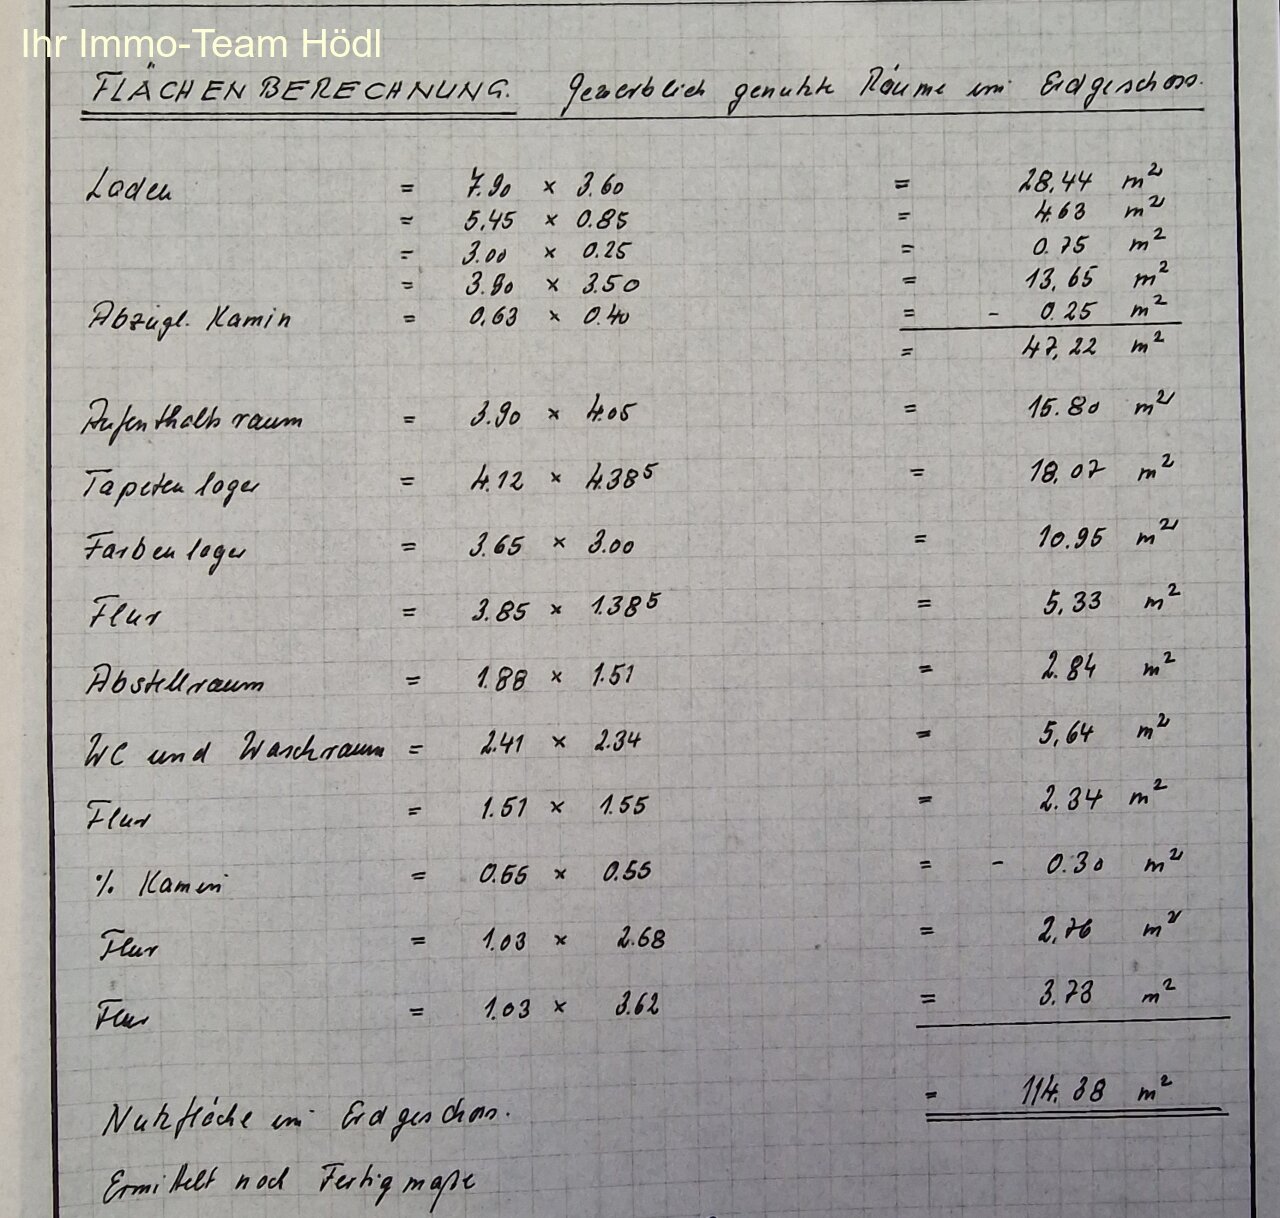 Ihr Immo-Team Hödl
FLÄCHENBERECHNUNG. Gewerblich genutzte Räume im Erdgeschoss.
Laden = 7.90 × 3.60 = 28,44 m²
= 5,45 × 0.85 = 4.63 m²
= 3.00 × 0.25 = 0.75 m²
= 3.90 × 3.50 = 13,65 m²
Abzügl. Kamin = 0,63 × 0.40 = - 0.25 m²
= 47,22 m²
Aufenthaltsraum = 3.90 × 4.05 = 15.80 m²
Tapetenlager = 4.12 × 4.38⁵ = 18,07 m²
Farbenlager = 3.65 × 3.00 = 10.95 m²
Flur = 3.85 × 1.38⁵ = 5,33 m²
Abstellraum = 1.88 × 1.51 = 2.84 m²
WC und Waschraum = 2.41 × 2.34 = 5,64 m²
Flur = 1.51 × 1.55 = 2.34 m²
·/. Kamin = 0.55 × 0.55 = - 0.30 m²
Flur = 1.03 × 2.68 = 2,76 m²
Flur = 1.03 × 3.62 = 3.73 m²
= 114.38 m²
Nutzfläche im Erdgeschoss.
Ermittelt nach Fertigmaße